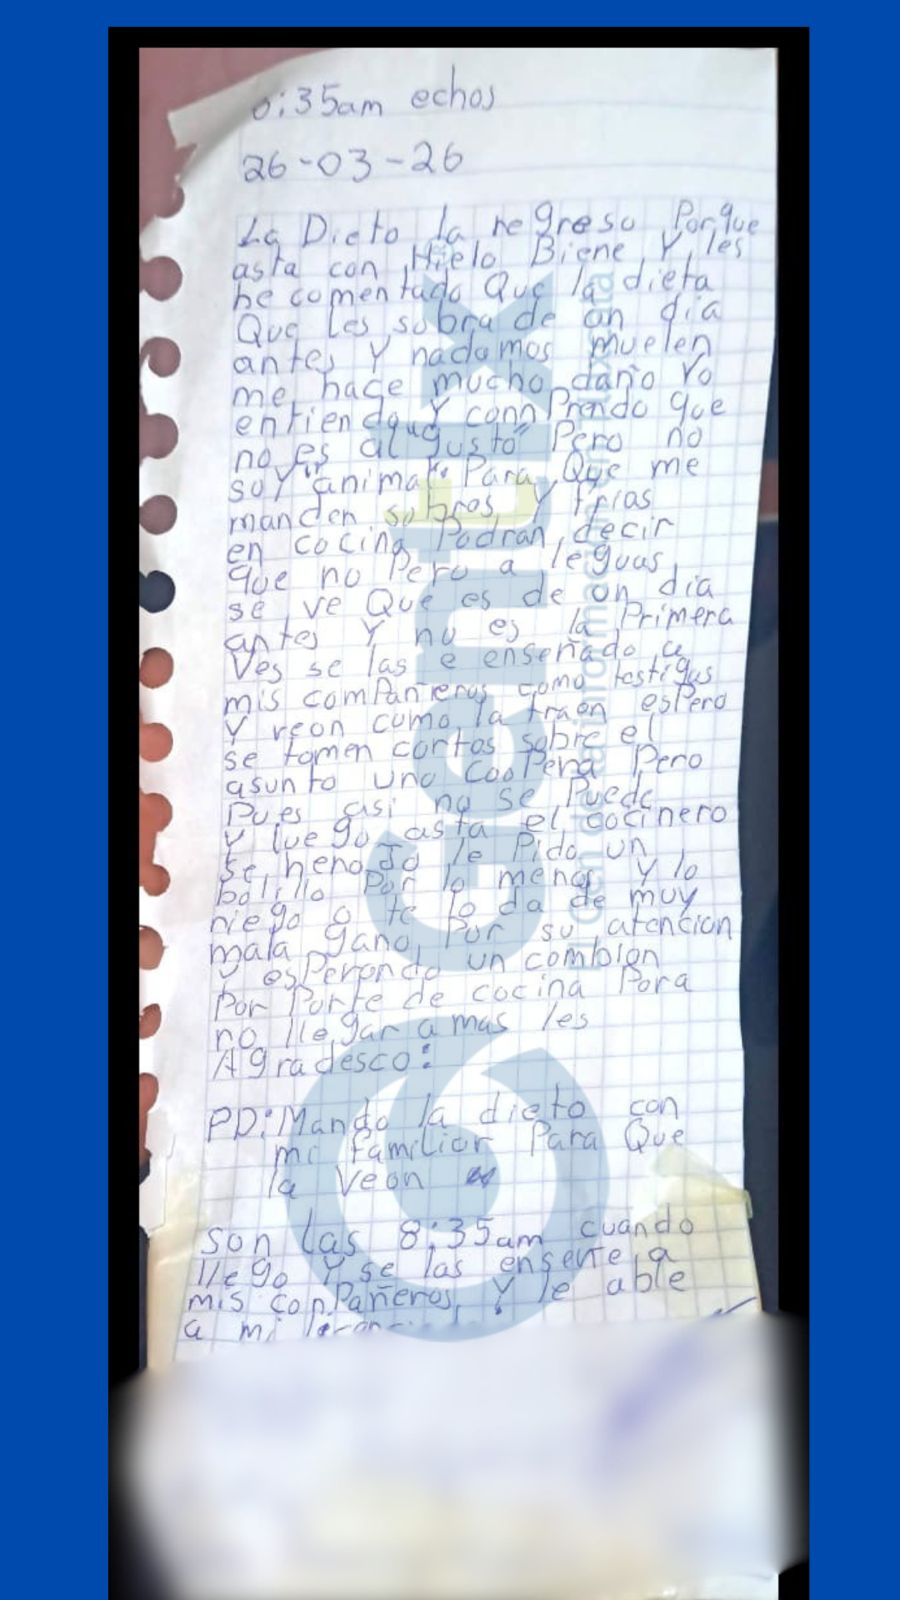 :35am echos
26-03-26
La Dieta la regreso Porque
asta con Hielo Biene Y les
he comentado Que la dieta
Que les sobra de on dia
antes Y nadamos muelen
me hace mucho daño Yo
entiendo Y connPrendo que
no es al "gusto" Pero no
soy "animal" Para Que me
manden sobras Y frias
en cocina Podran decir
que no Pero a leguas
se ve Que es de on dia
antes Y no es la Primera
Ves se las e enseñado a
mis comPañeros como testigos
Y veon como la traen esPero
se tomen cartas sobre el
asunto uno cooPera Pero
Pues asi no se Puede
Y luego asta el cocinero
se henojo le Pido un
bolillo Por lo menos Y lo
niego o te lo da de muy
mala gana, Por su atencion
Y esPerando un combion
Por Parte de cocina Para
no llegar a mas les
Agradesco:
PD: Mando la dieta con
mi familiar Para Que
la Veon
son las 8:35am cuando
llego Y se las enseñe a
mis conPañeros Y le able
a mi
GenTLX